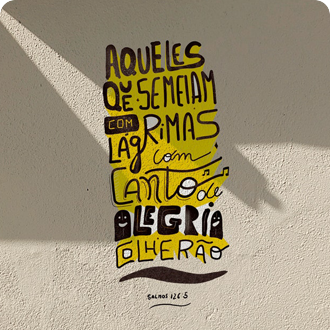 AQUELES
QUE SEMEIAM
COM
LÁGRIMAS
com
CANTO de
ALEGRIA
COLHERÃO
SALMOS 126:5